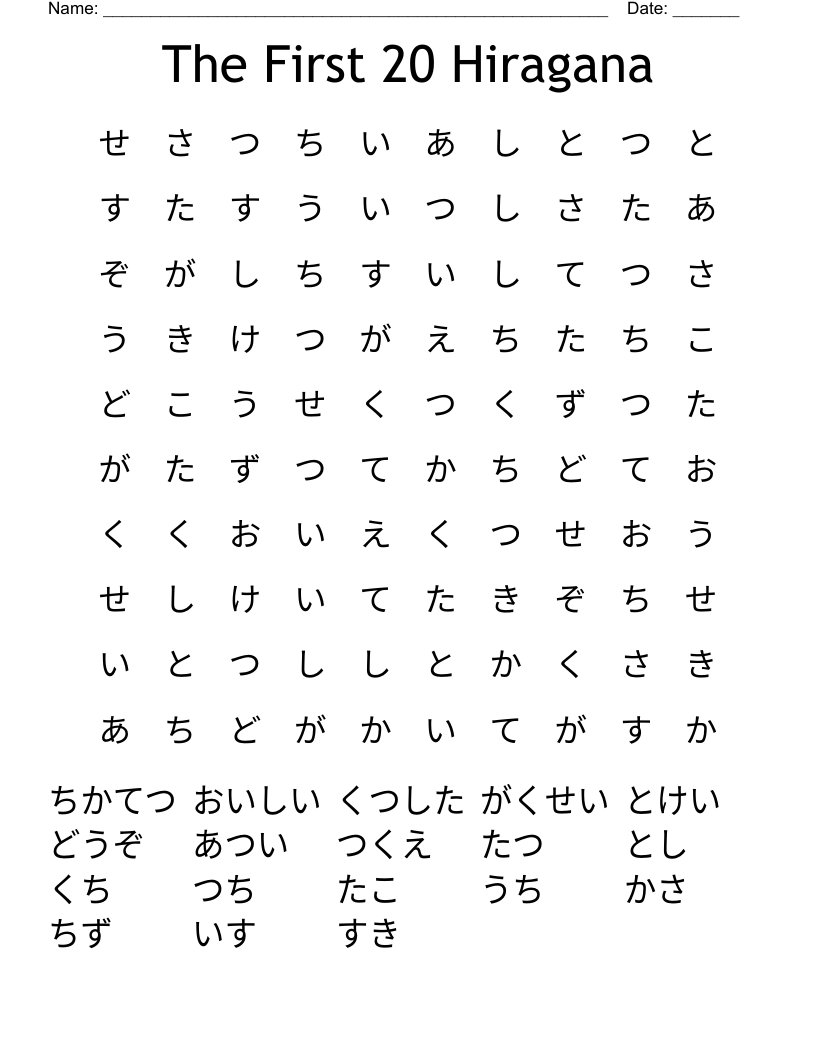 Name: ______________________________________________________ Date: _______
The First 20 Hiragana
せ さ つ ち い あ し と つ と
す た す う い つ し さ た あ
ぞ が し ち す い し て つ さ
う き け つ が え ち た ち こ
ど こ う せ く つ く ず つ た
が た ず つ て か ち ど て お
く く お い え く つ せ お う
せ し け い て た き ぞ ち せ
い と つ し し と か く さ き
あ ち ど が か い て が す か
ちかてつ おいしい くつした がくせい とけい
どうぞ あつい つくえ たつ とし
くち つち たこ うち かさ
ちず いす すき